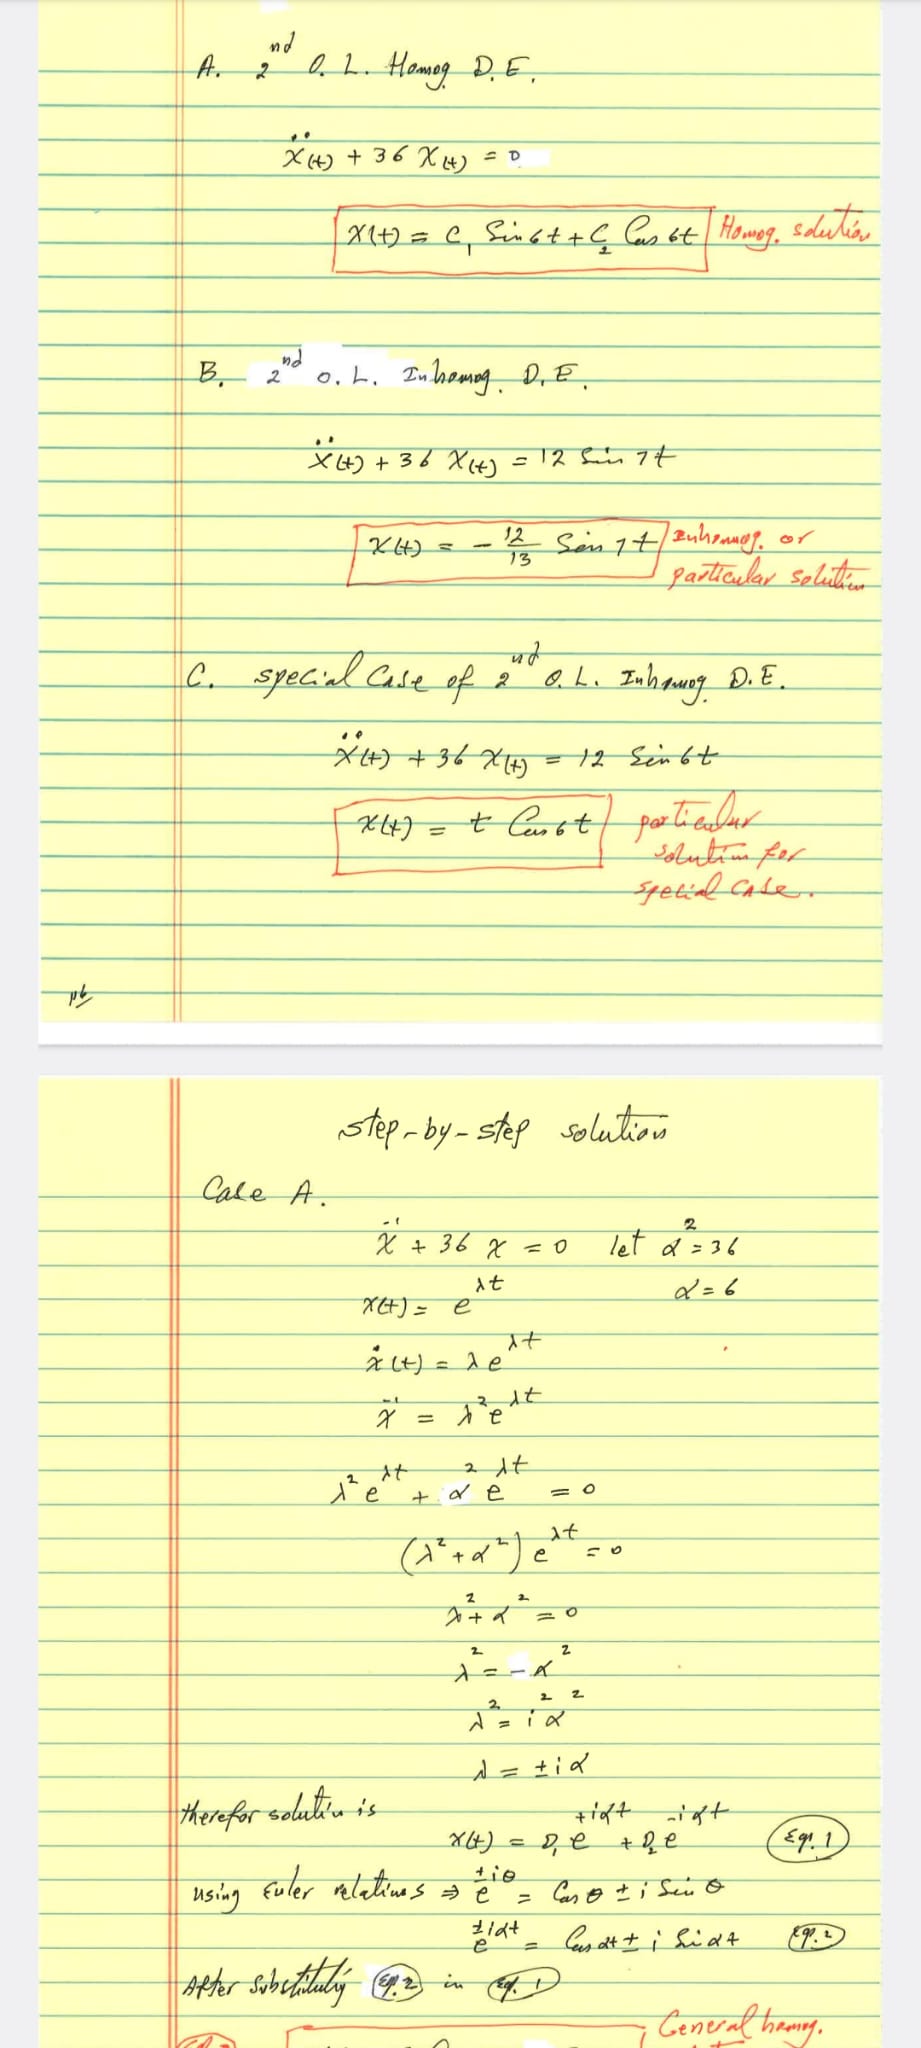 A. 2nd O. L. Homog. D. E.
ẍ(t) + 36 x(t) = 0
x(t) = C₁ Sin 6t + C₂ Cos 6t Homog. solution
B. 2nd O. L. Inhomog. D. E.
ẍ(t) + 36 x(t) = 12 Sin 7t
x(t) = - 12/13 Sin 7t Inhomog. or
particular solution
C. special Case of 2nd O. L. Inhomog. D. E.
ẍ(t) + 36 x(t) = 12 Sin 6t
x(t) = t Cos 6t particular
solution for
special case.
step-by-step solution
Case A.
ẍ + 36 x = 0 let α² = 36
x(t) = e^λt α = 6
ẋ(t) = λ e^λt
ẍ = λ² e^λt
λ² e^λt + α² e^λt = 0
(λ² + α²) e^λt = 0
λ² + α² = 0
λ² = - α²
λ² = i² α²
λ = ± i α
therefor solution is
x(t) = D₁ e^+iαt + D₂ e^-iαt Eq. 1
using Euler relations ⇒ e^±iθ = Cos θ ± i Sin θ
e^±iαt = Cos αt ± i Sin αt Eq. 2
After substituting Eq. 2 in Eq. 1
General homog.